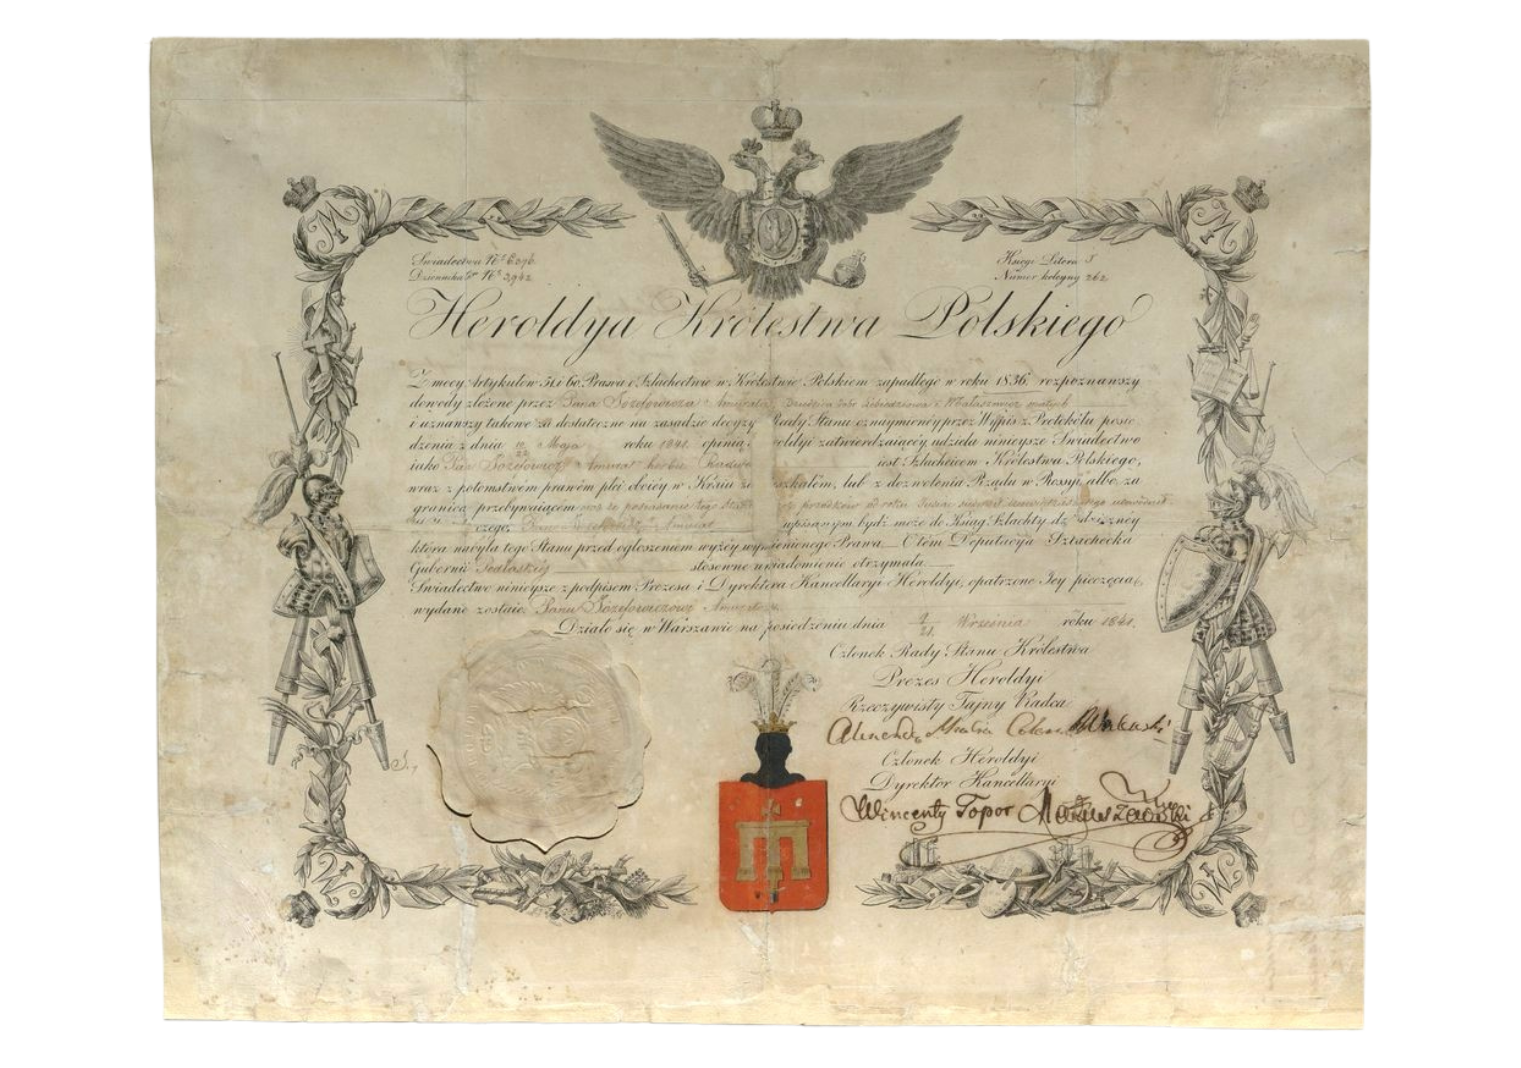 Świadectwo Nr 6296
Dziennika Nr 3942
Księgi Litera J
Numer kolejny 262
Heroldya Królestwa Polskiego
Z mocy Artykułów 51. i 60. Prawa o Szlachectwie w Królestwie Polskiem zapadłego w roku 1836. rozpoznawszy
dowody złożone przez Pana Józefowicza Amurata
i uznawszy takowe za dostateczne na zasadzie decyzyi Rady Stanu oznaymioney przez Wypis z Protokółu posie-
dzenia z dnia Maja roku 1841. opinią Heroldyi zatwierdzaiącey, udziela ninieysze Świadectwo
iako Pan Józefowicz Amurat herbu Radwan iest Szlachcicem Królestwa Polskiego,
wraz z potomstwem prawém płci oboiéy w Kraiu zamieszkałém, lub z dozwolenia Rządu w Rossyi albo za
granicą przebywaiącem
czego, wpisanym bydź może do Ksiąg Szlachty dziedziczney
która nabyła tego Stanu przed ogłoszeniem wyżéy wymienionego Prawa. O tém Deputacya Szlachecka
Gubernii Podlaskiéy stosowne uwiadomienie otrzymała.
Świadectwo ninieysze z podpisem Prezesa i Dyrektora Kancellaryi Heroldyi, opatrzone Jey pieczęcią,
wydane zostaie Panu Józefowiczowi Amuratowi.
Działo się w Warszawie na posiedzeniu dnia 9/21 Września roku 1841.
Członek Rady Stanu Królestwa
Prezes Heroldyi
Rzeczywisty Tajny Radca
Członek Heroldyi
Dyrektor Kancellaryi
Wincenty Topor Matuszewski